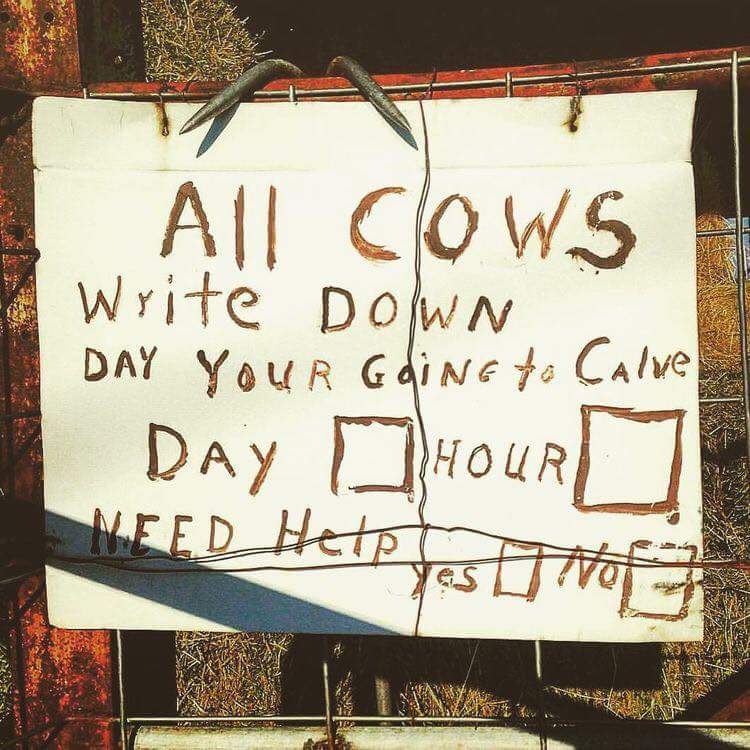 All COWS
Write DOWN
DAY YOUR GOING to CAlve
DAY HOUR
NEED Help
yes No